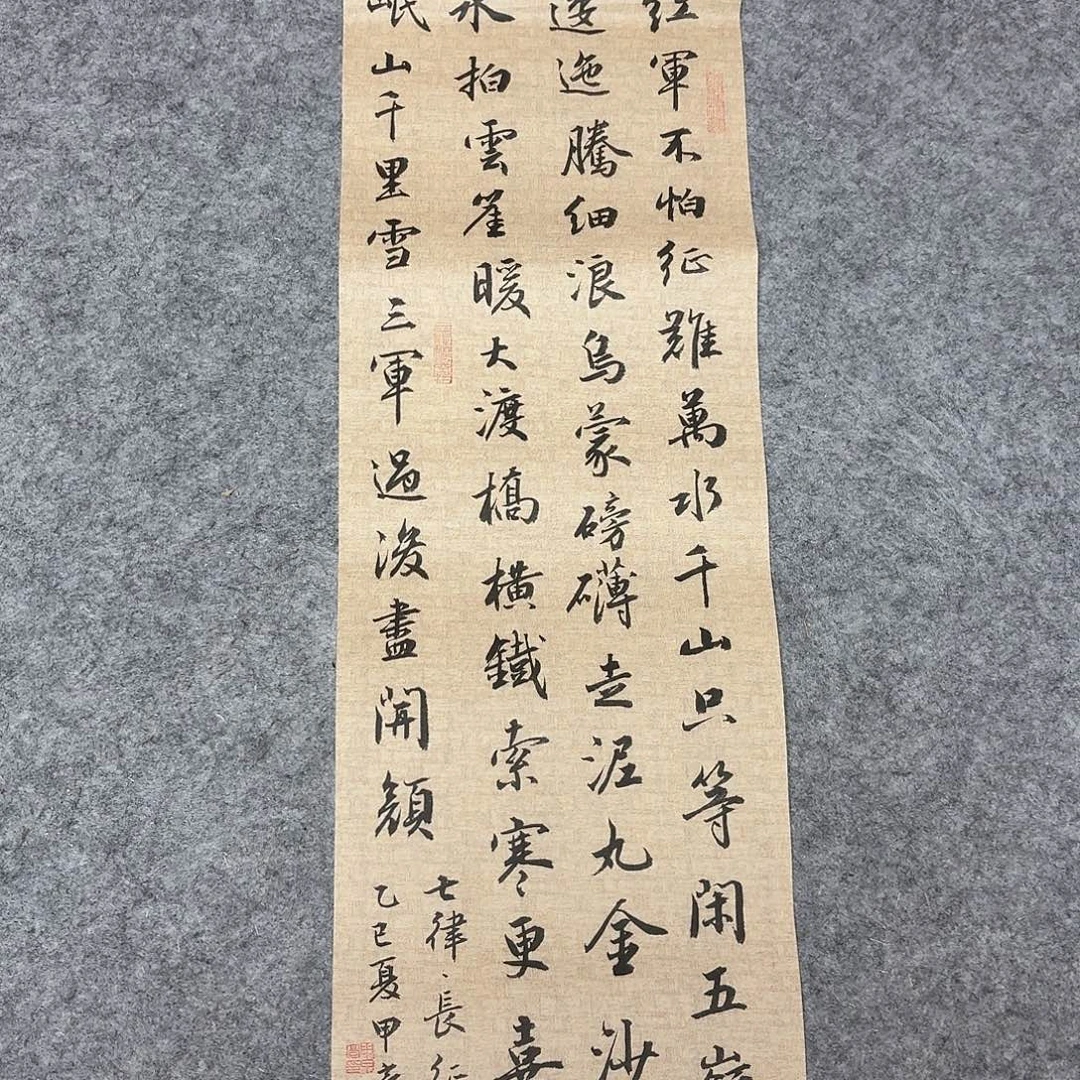 紅軍不怕征難萬水千山只等閑五嶺
逶迤騰細浪烏蒙磅礴走泥丸金沙
水拍雲崖暖大渡橋橫鐵索寒更喜
岷山千里雪三軍過後盡開顏
七律、長征
乙巳夏甲